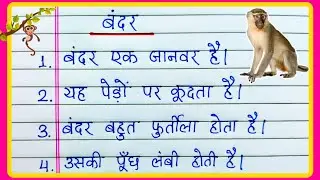 बंदर
1. बंदर एक जानवर है।
2. यह पेड़ों पर कूदता है।
3. बंदर बहुत फुर्तीला होता है।
4. उसकी पूँछ लंबी होती है।